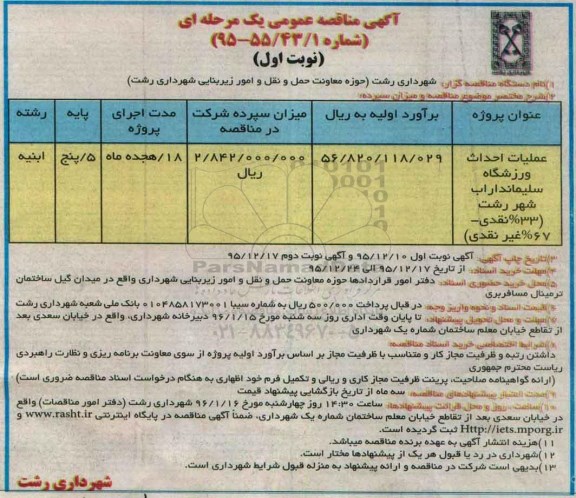 آگهی مناقصه عمومی یک مرحله ای
(شماره ۹۵-۵۵/۴۳/۱)
(نوبت اول)
۱)نام دستگاه مناقصه گزار: شهرداری رشت (حوزه معاونت حمل و نقل و امور زیربنایی شهرداری رشت)
۲)شرح مختصر موضوع مناقصه و میزان سپرده:
عنوان پروژه
برآورد اولیه به ریال
میزان سپرده شرکت در مناقصه
مدت اجرای پروژه
پایه
رشته
عملیات احداث ورزشگاه سلیمانداراب شهر رشت (۳۳%نقدی-۶۷%غیر نقدی)
۵۶/۸۲۰/۱۱۸/۰۲۹
۲/۸۴۲/۰۰۰/۰۰۰ ریال
۱۸/هجده ماه
۵/پنج
ابنیه
۳)تاریخ چاپ آگهی: آگهی نوبت اول ۹۵/۱۲/۱۰ و آگهی نوبت دوم ۹۵/۱۲/۱۷
۴)مهلت خرید اسناد: از تاریخ ۹۵/۱۲/۱۷ الی ۹۵/۱۲/۲۴
۵)محل خرید حضوری اسناد: دفتر امور قراردادها حوزه معاونت حمل و نقل و امور زیربنایی شهرداری واقع در میدان گیل ساختمان
ترمینال مسافربری
۶)قیمت اسناد و نحوه واریز وجه: در قبال پرداخت ۵۰۰/۰۰۰ ریال به شماره سیبا ۰۱۰۴۸۵۸۱۷۳۰۰۱ بانک ملی شعبه شهرداری رشت
۷)مهلت و محل تحویل پیشنهاد: تا پایان وقت اداری روز سه شنبه مورخ ۹۶/۱/۱۵ دبیرخانه شهرداری، واقع در خیابان سعدی بعد
از تقاطع خیابان معلم ساختمان شماره یک شهرداری
۸)شرایط اختصاصی خرید اسناد مناقصه:
داشتن رتبه و ظرفیت مجاز کار و متناسب با ظرفیت مجاز بر اساس برآورد اولیه پروژه از سوی معاونت برنامه ریزی و نظارت راهبردی
ریاست محترم جمهوری
(ارائه گواهینامه صلاحیت، پرینت ظرفیت مجاز کاری و ریالی و تکمیل فرم خود اظهاری به هنگام درخواست اسناد مناقصه ضروری است)
۹)مدت اعتبار پیشنهادهای مناقصه: سه ماه از تاریخ بازگشایی پیشنهاد قیمت
۱۰)ساعت، روز و محل قرائت پیشنهادها: ساعت ۱۴:۳۰ روز چهارشنبه مورخ ۹۶/۱/۱۶ شهرداری رشت (دفتر امور مناقصات) واقع
در خیابان سعدی بعد از تقاطع خیابان معلم ساختمان شماره یک شهرداری، ضمناً آگهی مناقصه در پایگاه اینترنتی www.rasht.ir و
Http://iets.mporg.ir ثبت گردیده است.
۱۱)هزینه انتشار آگهی به عهده برنده مناقصه میباشد.
۱۲)شهرداری در رد یا قبول هر یک از پیشنهادها مختار است.
۱۳)بدیهی است شرکت در مناقصه و ارائه پیشنهاد به منزله قبول شرایط شهرداری است.
شهرداری رشت